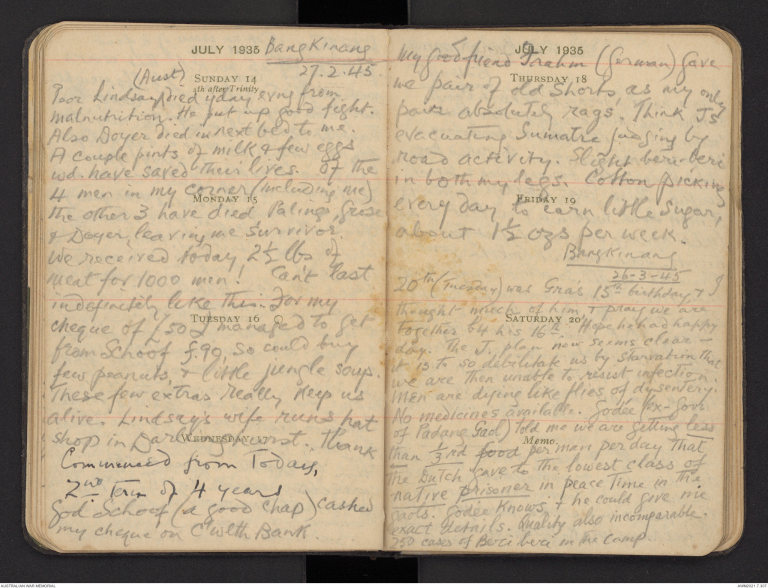 JULY 1935 Bangkinang
27.2.45
SUNDAY 14
4th after Trinity
(Aust)
Poor Lindsay died y'day evng from
malnutrition. He put up good fight.
Also Doyer died in next bed to me.
A couple pints of milk & few eggs
wd. have saved their lives. Of the
4 men in my corner (including me)
MONDAY 15
the other 3 have died Palings,
& Doyer, leaving me survivor
We received today 2½ lbs of
meat for 1000 men! Can't last
indefinitely like this. For my
TUESDAY 16
cheque of £50 I managed to get
from Schoof f.90, so could buy
few peanuts & little jungle soup.
These few extras really keep us
alive. Lindsay's wife runs hat
WEDNESDAY 17
shop in Darlinghurst. Thank
Commenced from Today,
2nd Term of 4 years
God Schoof (a good chap) cashed
my cheque on C'wlth Bank.
JULY 1935
My good friend Frahm (German) gave
THURSDAY 18
me pair of old shorts, as my only
pair absolutely rags. Think J's
evacuating Sumatra judging by
road activity. Slight beri-beri
in both my legs. Cotton picking
FRIDAY 19
every day to earn little sugar,
about 1½ ozs per week.
Bangkinang
26-3-45
20th (Tuesday) was Gra's 15th birthday & I
thought much of him & pray we are
SATURDAY 20
together b4 his 16th. Hope he had happy
day. The J. plan now seems clear –
it is to so debilitate us by starvation that
we are then unable to resist infection.
Men are dying like flies of dysentery.
No medicines available. Jodee (ex-Govr.
of Padang Gaol) told me we are getting less
MEMO.
than ⅓rd food per man per day that
the Dutch gave to the lowest class of
native prisoner in peace time in the
gaols. Jodee knows, & he could give me
exact details. Quality also incomparable.
750 cases of Beri beri in the camp.
AUSTRALIAN WAR MEMORIAL